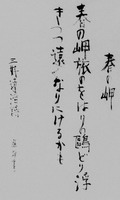 春の岬
春の岬旅のをはりの鴎どり浮
きつつ遠くなりにけるかも
三好達治